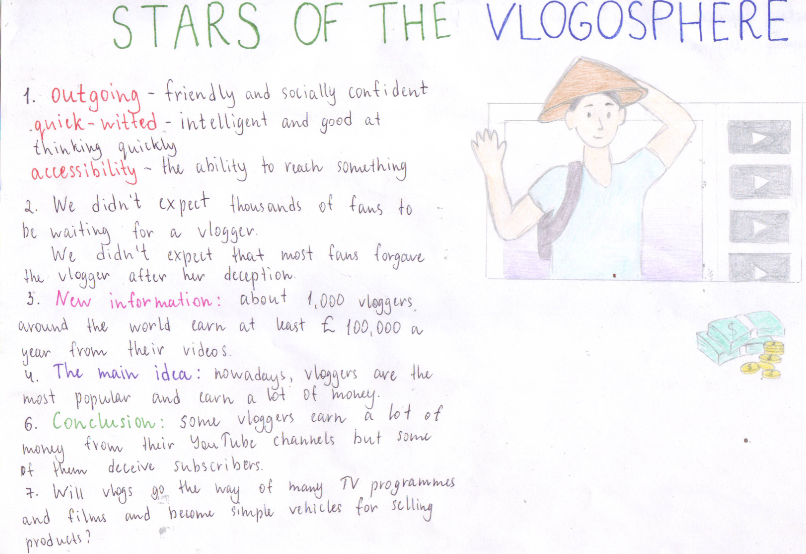 STARS OF THE VLOGOSPHERE
1. Outgoing - friendly and socially confident
quick-witted - intelligent and good at
thinking quickly
accessibility - the ability to reach something
2. We didn't expect thousands of fans to
be waiting for a vlogger.
We didn't expect that most fans forgave
the vlogger after her deception.
3. New information: about 1,000 vloggers
around the world earn at least £ 100,000 a
year from their videos.
4. The main idea: nowadays, vloggers are the
most popular and earn a lot of money.
6. Conclusion: some vloggers earn a lot of
money from their YouTube channels but some
of them deceive subscribers.
7. Will vlogs go the way of many TV programmes
and films and become simple vehicles for selling
products?
$